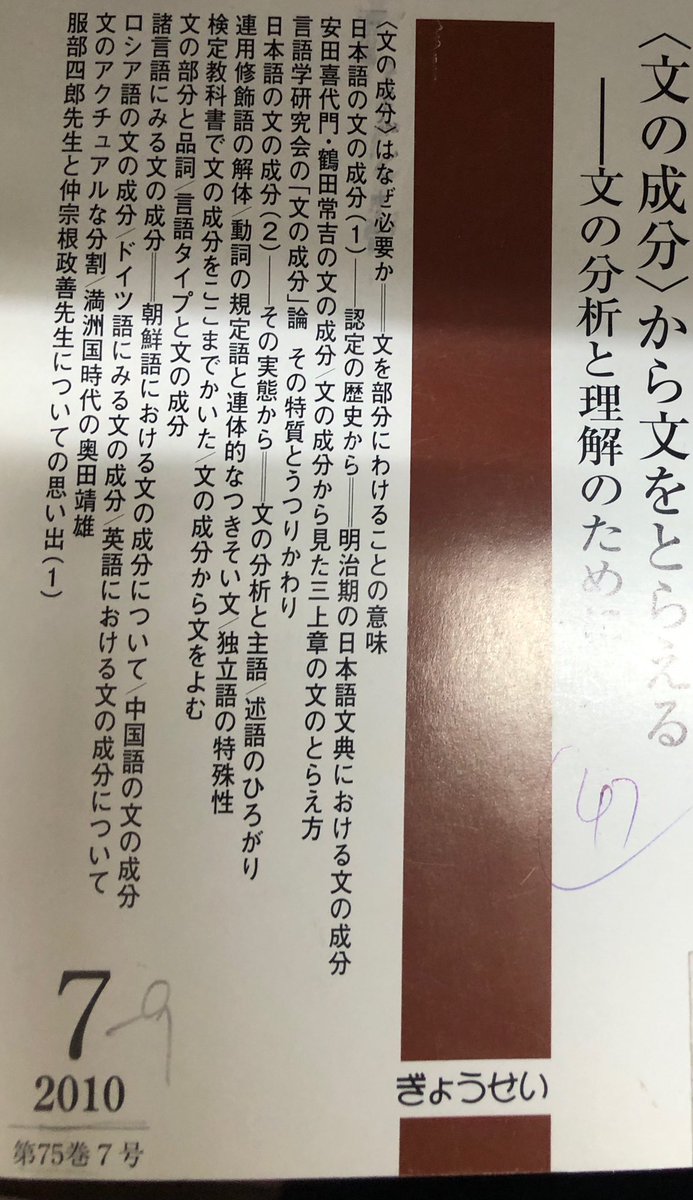 〈文の成分〉から文をとらえる
――文の分析と理解のために
(47)
〈文の成分〉はなぜ必要か＝文を部分にわけることの意味
日本語の文の成分(1)――認定の歴史から＝明治期の日本語文典における文の成分
安田喜代門・鶴田常吉の文の成分/文の成分から見た三上章の文のとらえ方
言語学研究会の「文の成分」論　その特質とうつりかわり
日本語の文の成分(2)――その実態から＝文の分析と主語/述語のひろがり
連用修飾語の解体/動詞の規定語と連体的なつきそい文/独立語の特殊性
検定教科書で文の成分をここまでかいた/文の成分から文をよむ
文の部分と品詞/言語タイプと文の成分
諸言語にみる文の成分＝朝鮮語における文の成分について/中国語の文の成分
ロシア語の文の成分/ドイツ語にみる文の成分/英語における文の成分について
文のアクチュアルな分割/満洲国時代の奥田靖雄
服部四郎先生と仲宗根政善先生についての思い出(1)
7-9
2010
第75巻7号
ぎょうせい